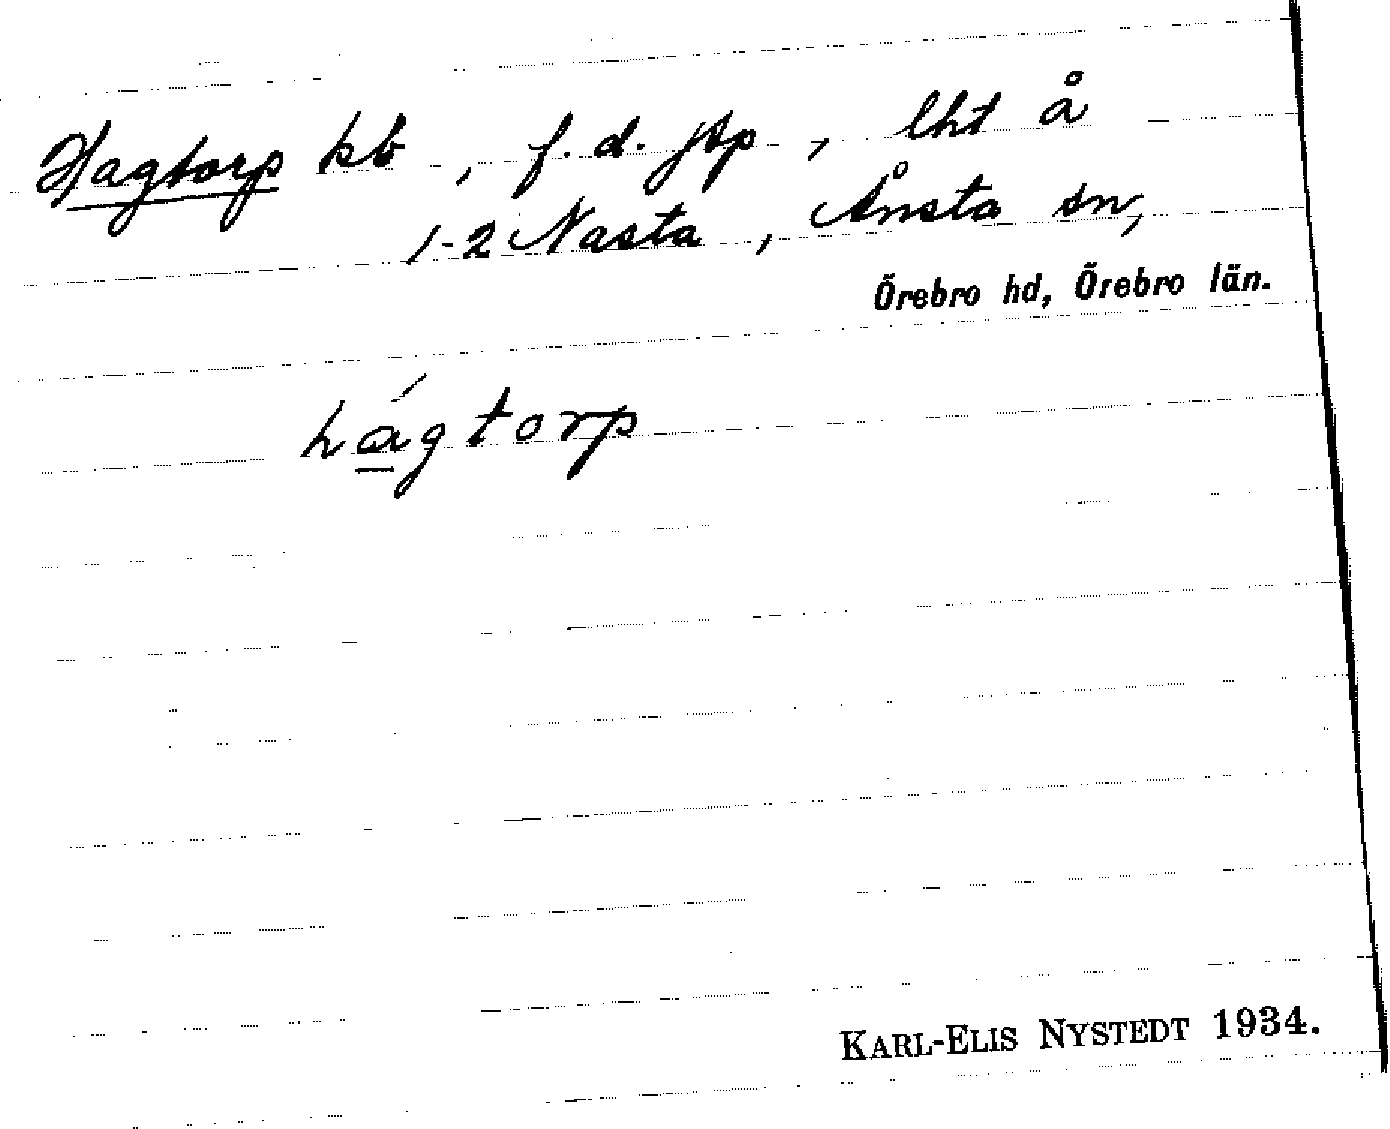 Hagtorp kb, f. d. jtp, lht å
1-2 Nasta, Ånsta sn,
Örebro hd, Örebro län.
hágtorp
KARL-ELIS NYSTEDT 1934.